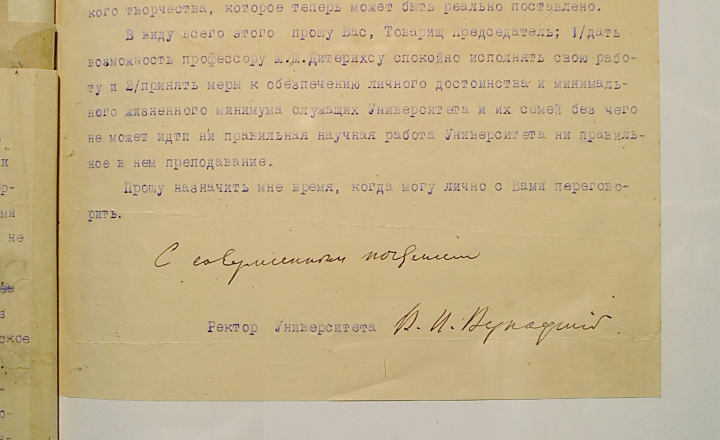 кого творчества, которое теперь может быть реально поставлено.
В виду всего этого прошу Вас, Товарищ Председатель; I/дать
возможность профессору М.М.Дитерихсу спокойно исполнять свою рабо-
ту и 2/принять меры к обезпечению личного достоинства и минималь-
ного жизненного минимума служащих Университета и их семей без чего
не может идти ни правильная научная работа Университета ни правиль-
ное в нем преподавание.
Прошу назначить мне время, когда могу лично с Вами перегово-
рить.
С совершенным почтением
Ректор Университета В. И. Вернадский
и
ор-
ми
не
ское